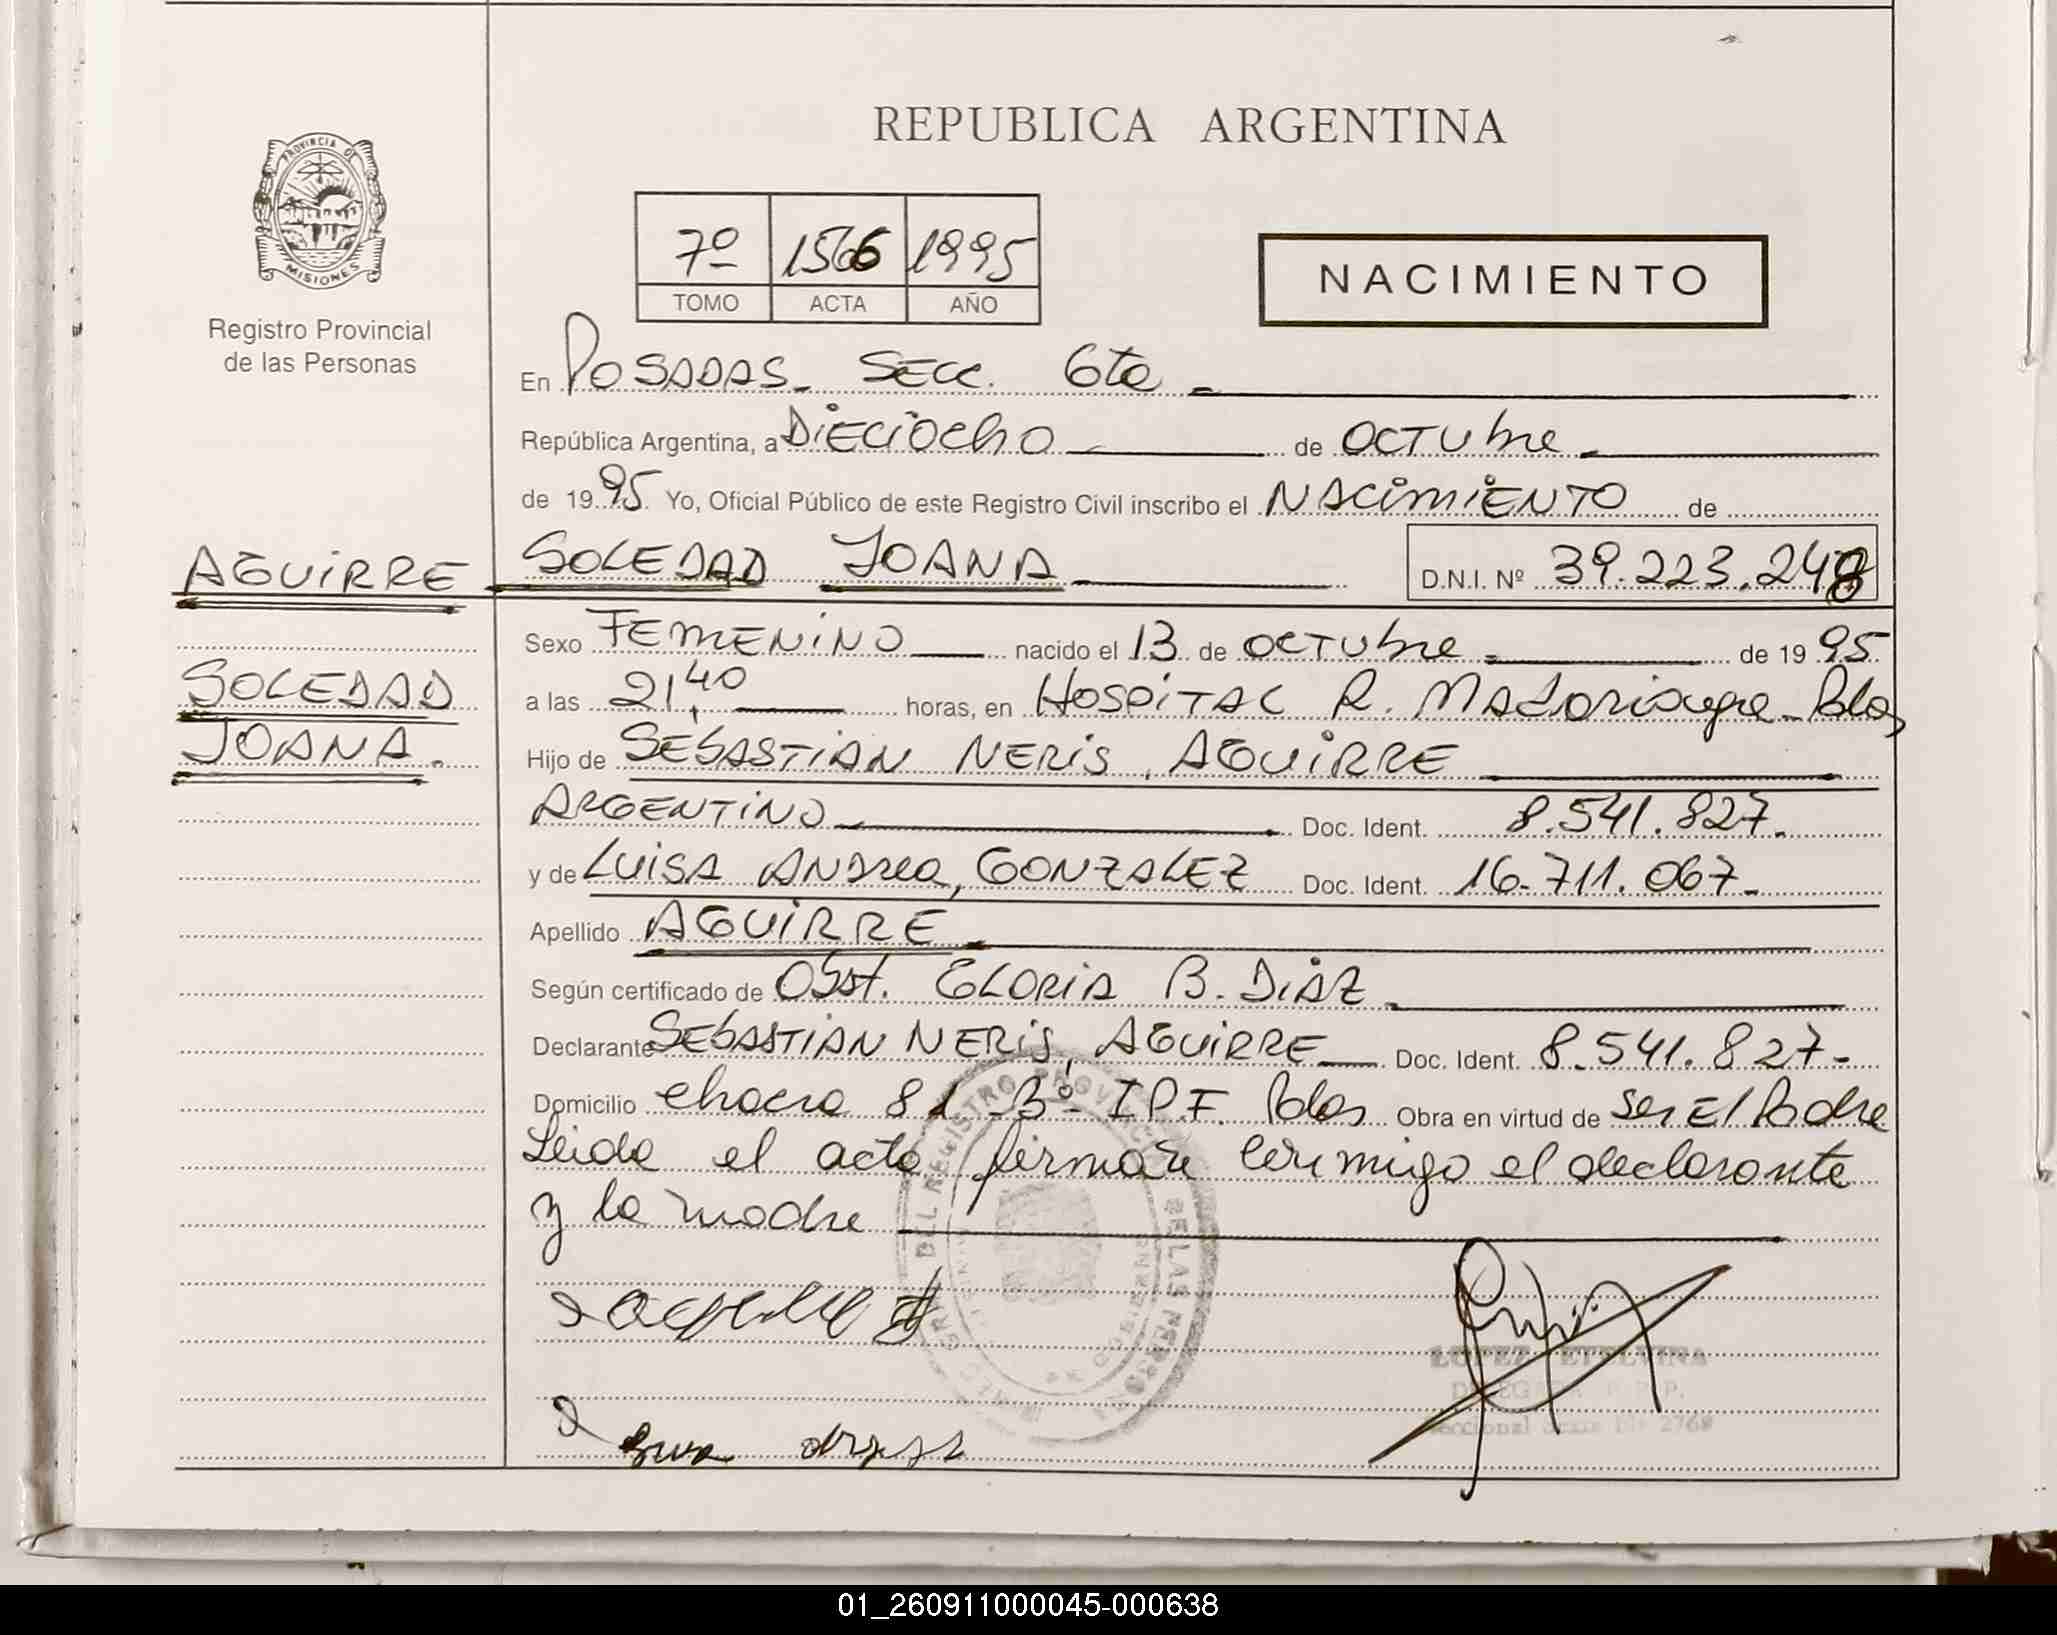 REPUBLICA ARGENTINA
PROVINCIA DE
MISIONES
Registro Provincial
de las Personas
7º 1566 1995
TOMO ACTA AÑO
NACIMIENTO
En POSADAS - SECC. 6ta -
República Argentina, a DIECIOCHO de OCTUbre
de 1995 Yo, Oficial Público de este Registro Civil inscribo el NACIMIENTO de
AGUIRRE SOLEDAD JOANA D.N.I. Nº 39.223.248
Sexo FEMENINO nacido el 13 de OCTUbre de 1995
SOLEDAD
a las 21,40 horas, en HOSPITAL R. MADARIAGA - Pdas
JOANA.
Hijo de SEBASTIAN NERIS, AGUIRRE
ARGENTINO Doc. Ident. 8.541.827.
y de LUISA ANDREA, GONZALEZ Doc. Ident. 16.711.067-
Apellido AGUIRRE
Según certificado de Obst. GLORIA B. DIAZ
Declarante SEBASTIAN NERIS, AGUIRRE Doc. Ident. 8.541.827-
Domicilio chacra 81 - Bº - I.P.F. Pdas Obra en virtud de ser El Padre
Leida el acta firmaron conmigo el declarante
y la madre
LOPEZ ETELVINA
01_260911000045-000638